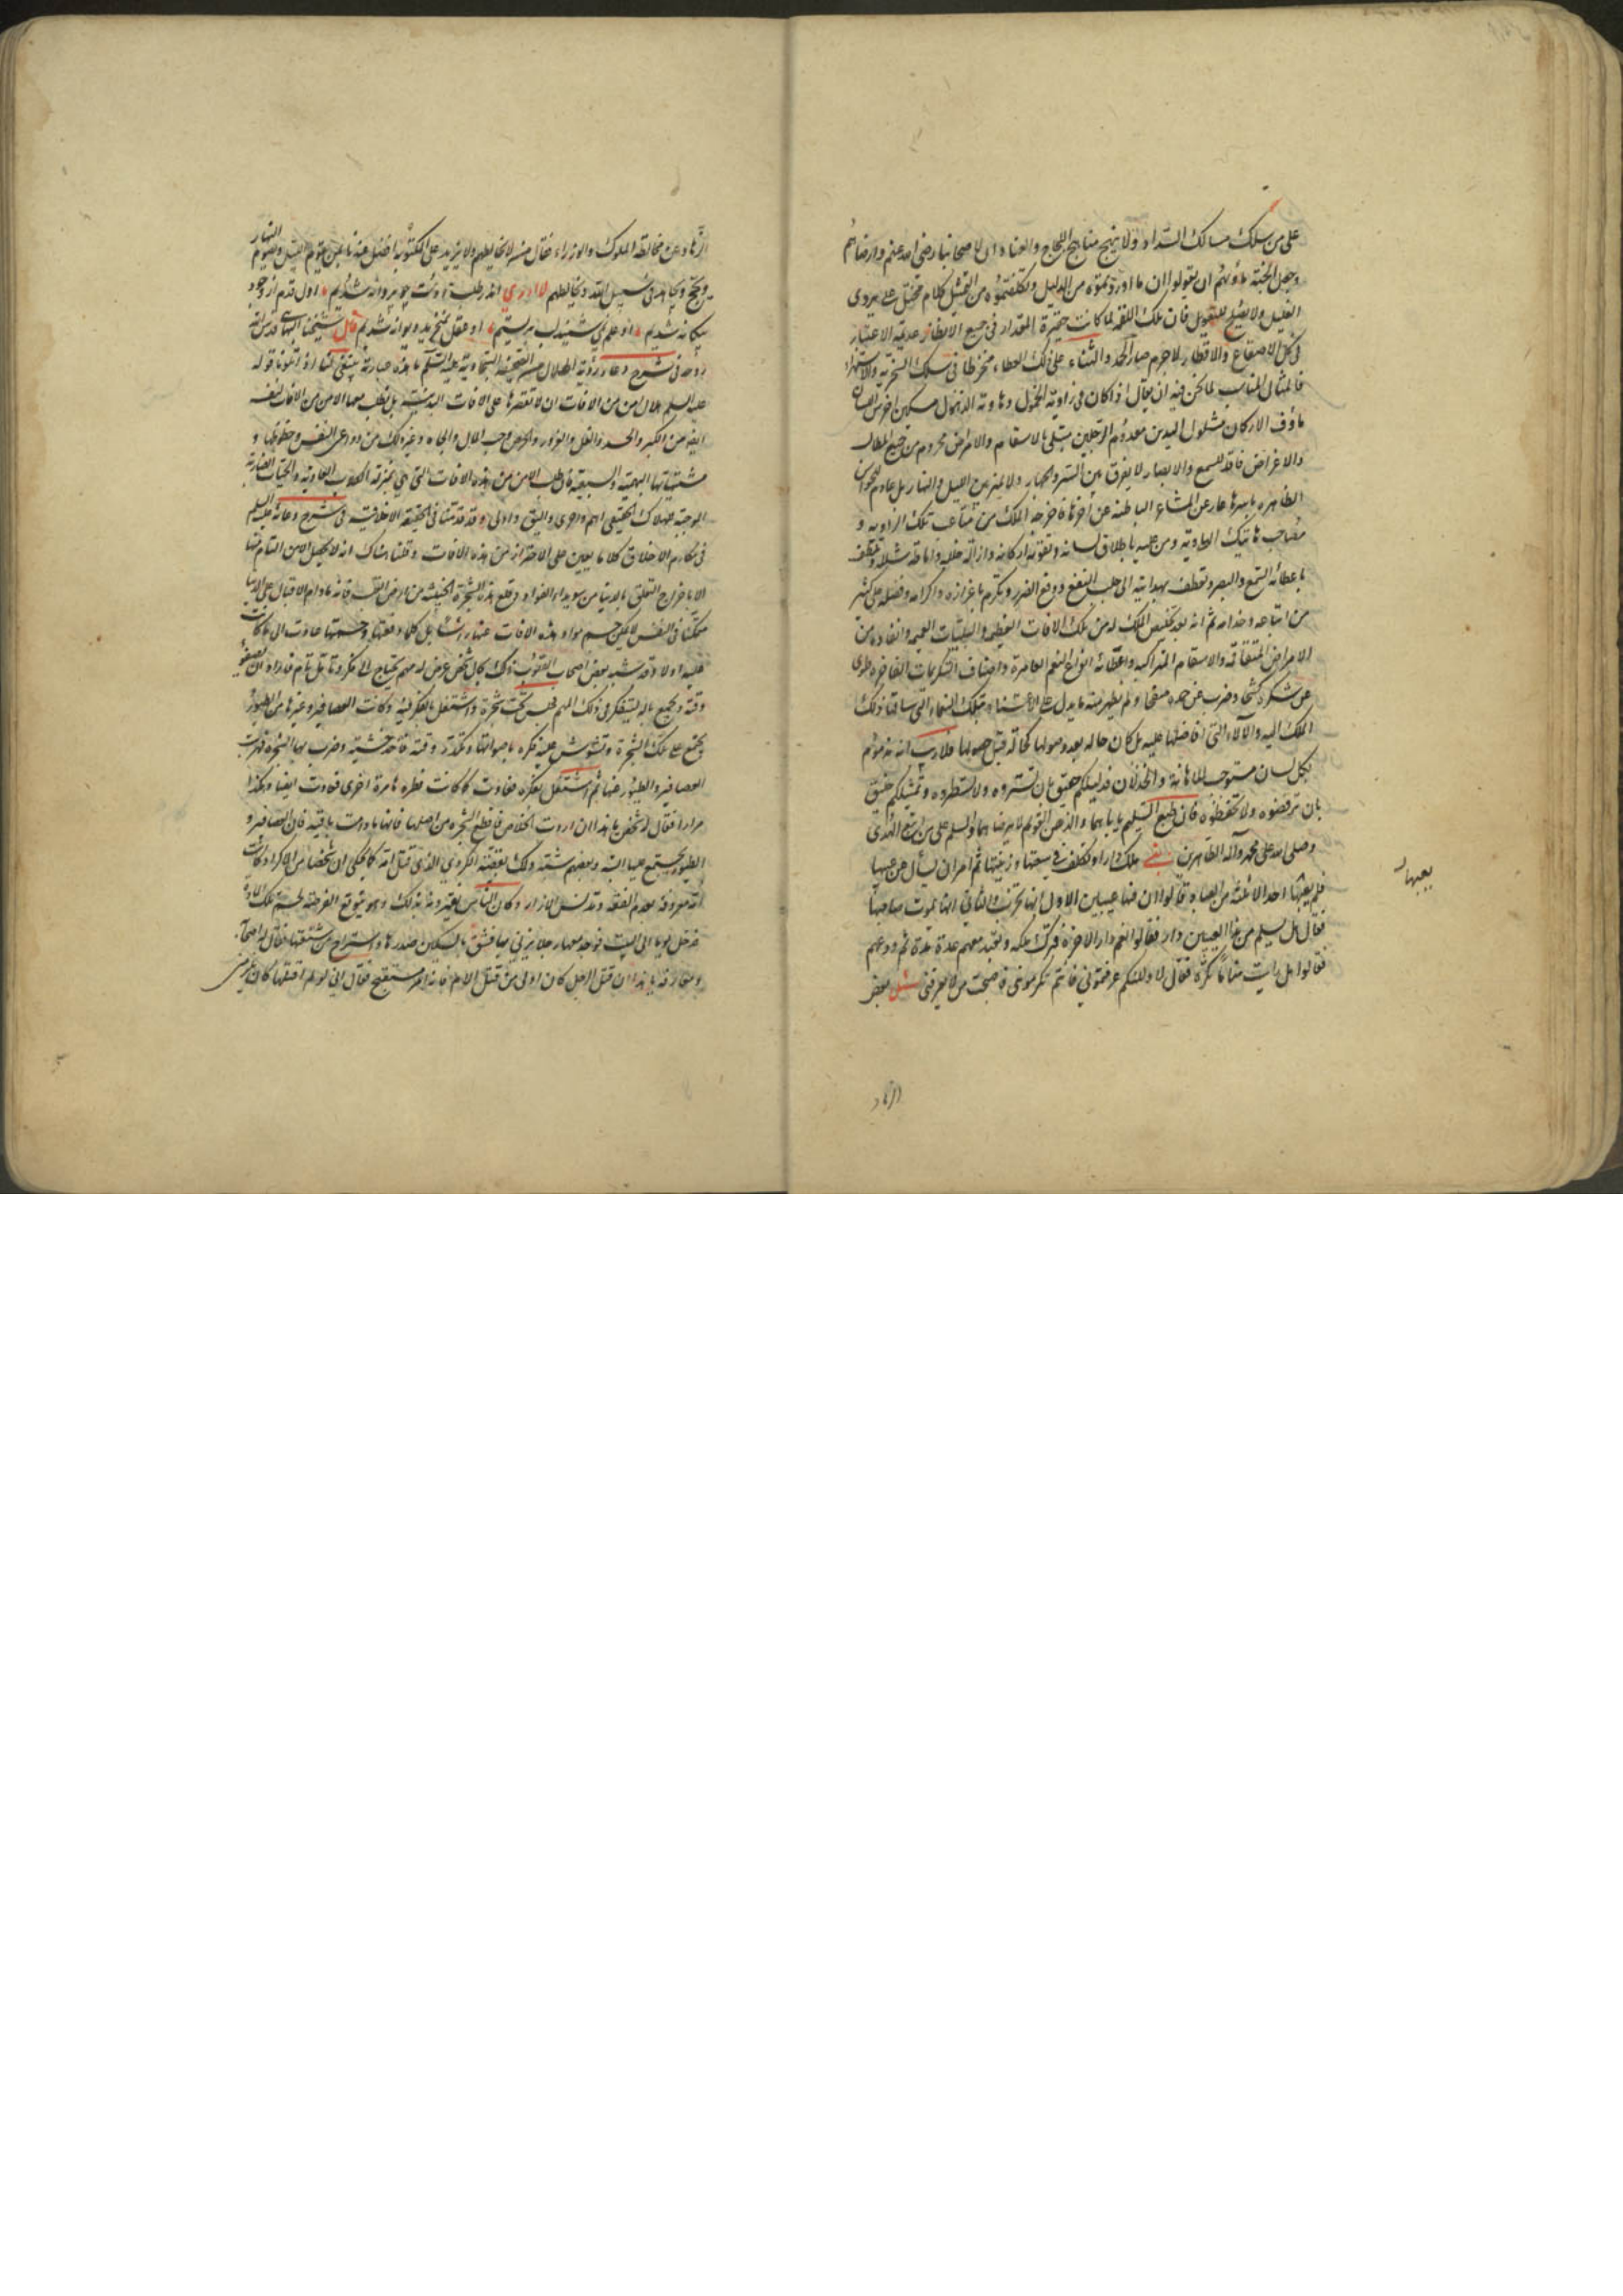 على من سلك مسالك السداد ولا ينهج مناهج اللجاج والعناد ان لاصحابنا رضى الله عنهم وارضاهم
وجعل الجنة مأويهم ان يقولوا ان ما اوردتموه من الدليل وتكلفتموه من التمثيل كلام مخيل عليل يروى
الغليل ولا يصلح للتعويل فان تلك اللقمة لما كانت حقيرة المقدار فى جميع الانظار عديمة الاعتبار
فى كل الاصقاع والاقطار لا جرم صار الحمد والثناء على ذلك العطاء منخرطا فى سلك السخرية والاستهزاء
فالمثال المناسب لما نحن فيه ان يقال اذا كان فى زاوية الخمول وهاوية الذهول مسكين اخرس اللسان
مأوف الاركان مشلول اليدين معدوم الرجلين مبتلى بالاسقام والامراض محروم من جميع المطالب
والاغراض فاقد للسمع والابصار لا يفرق بين السر والجهار ولا يميز بين الليل والنهار بل عادم للحواس
الظاهرة باسرها عار عن المشاعر الباطنة عن آخرها فاخرجه الملك من متاعب تلك الزاوية و
مصاعب هاتيك الهاوية ومن عليه باطلاق لسانه وتقوية اركانه وازالة خلله واماطة شلله وتعطف
باعطائه السمع والبصر وتعطف بهدايته الى جلب النفع ودفع الضرر وتكرم باعزازه واكرامه وفضله على كثير
من اتباعه وخدامه ثم انه بعد تخليص الملك له من تلك الآفات العظيمة والبليات العميمة وانقاذه من
الامراض المتفاقمة والاسقام المتراكمة واعطائه انواع النعم الغامرة واصناف التكريمات الفاخرة طوى
عن شكره كشحا وضرب عن حمده صفحا ولم يظهر منه ما يدل على الاعتناء بتلك النعماء التى ساقها ذلك
الملك اليه والآلاء التى افاضها عليه بل كان حاله بعد وصولها كحاله قبل حصولها فلا ريب انه مذموم
بكل لسان مستوجب للاهانة والخذلان فدليلكم حقيق بان تستروه ولا تسطروه وتمثيلكم خليق
بان ترفضوه ولا تحفظوه فان طبع السليم ياباهما والذهن القويم لا يرضاهما والسلم على من اتبع الهدى
وصلى الله على محمد وآله الطاهرين بنى ملك دارا وتكلف فى سعتها وزينتها ثم امر ان يسأل عن عيبها
فلم يعبها احد الا ثلثة من العباد قالوا ان فيها عيبين الاول انها تخرب والثانى انها يموت صاحبها
فقال هل يسلم من هذا العيبين دار فقالوا نعم دار الآخرة فترك ملكه وتعبد معهم مدة ثم ودعهم
فقالوا هل رايت منا ما تكره فقال لا ولكنكم عرفتمونى فانتم تكرمونى فاصحب من لا يعرفنى سئل بعض
يعبها
الزهاد
الزهاد عن مخالطة الملوك والوزراء فقال من لا يخالطهم ولا يزيد على المكتوبة افضل عندنا ممن يقوم الليل ويصوم النهار
ويحج ويجاهد فى سبيل الله ويخالطهم لا ادرى اندر طلبت دوست چو پروانه شديم اول قدم از وجود
بيگانه شديم او علم نمى شنيد لب بربستيم او عقل نمى خريد ديوانه شديم قال شيخنا البهائى قدس الله
روحه فى شرح دعاء رؤية الهلال من الصحيفة السجادية عليه السلم ما هذه عبارته ينبغى لنا اذا تلونا قوله
عليه السلم هلال امن من الآفات ان لا نقصرها على الآفات البدنية بل نطلب معها الامن من الآفات النفسية
ايضا من الكبر والحسد والغل والغرور والحرص وحب المال والجاه وغير ذلك من دواعى النفس وحظوظها و
مشتهياتها البهيمية والسبعية فان طلب الامن من هذه الآفات التى هى بمنزلة الكلاب العاوية والحيات الضارية
الموجبة للهلاك الحقيقى اهم واحرى واليق واولى وقد قدمنا فى الحديقة الاخلاقية فى شرح دعائه عليه السلم
فى مكارم الاخلاق كلاما يعين على الاحتراز من هذه الآفات وقلنا هناك انه لا يحصل الامن التام منها
الا باخراج التعلق بالدنيا من سويداء الفؤاد وقلع هذه الشجرة الخبيثة من ارض القلب فانه ما دام الاقبال على الدنيا
متمكنا فى النفس لا يمكن حسم مواد هذه الآفات عنها راسا بل كلما دفعتها وحسمتها عادت الى ما كانت
عليه اولا وقد شبه بعض اصحاب القلوب ذلك بحال شخص عرض له مهم يحتاج الى فكر وتأمل تام فاراد ان يصفو
وقته ويجمع باله ليتفكر فى ذلك المهم فجلس تحت شجرة واشتغل بالفكر فيه وكانت العصافير وغيرها من الطيور
يجتمع على تلك الشجرة وتشوش عليه فكره باصواتها وتكدر وقته فاخذ خشبة وضرب بها الشجرة فهربت
العصافير والطيور عنها ثم اشتغل بفكره فعادت كما كانت فطردها مرة اخرى فعادت ايضا وهكذا
مرارا فقال له شخص يا هذا ان اردت الخلاص فاقطع الشجرة من اصلها فانها ما دامت باقية فان العصافير و
الطيور يجتمع عليها البتة وبعضهم شبه ذلك بقصة الكردى الذى قتل امه كما يحكى ان شخصا من الاكراد كانت
امه معروفة بعدم العفة وتدنس الازار وكان الناس يعيرونه بذلك وهو يتوقع الفرصة لحسم تلك المادة
فدخل يوما الى البيت فوجد معها رجلا يزنى بها فشق بالسكين صدرها واستراح من شنعتها فقال له اصحابه
ومعارفه يا هذا ان قتل الرجل كان اولى من قتل الام فانه امر مستقبح فقال انى لو لم اقتلها كان يلزمنى